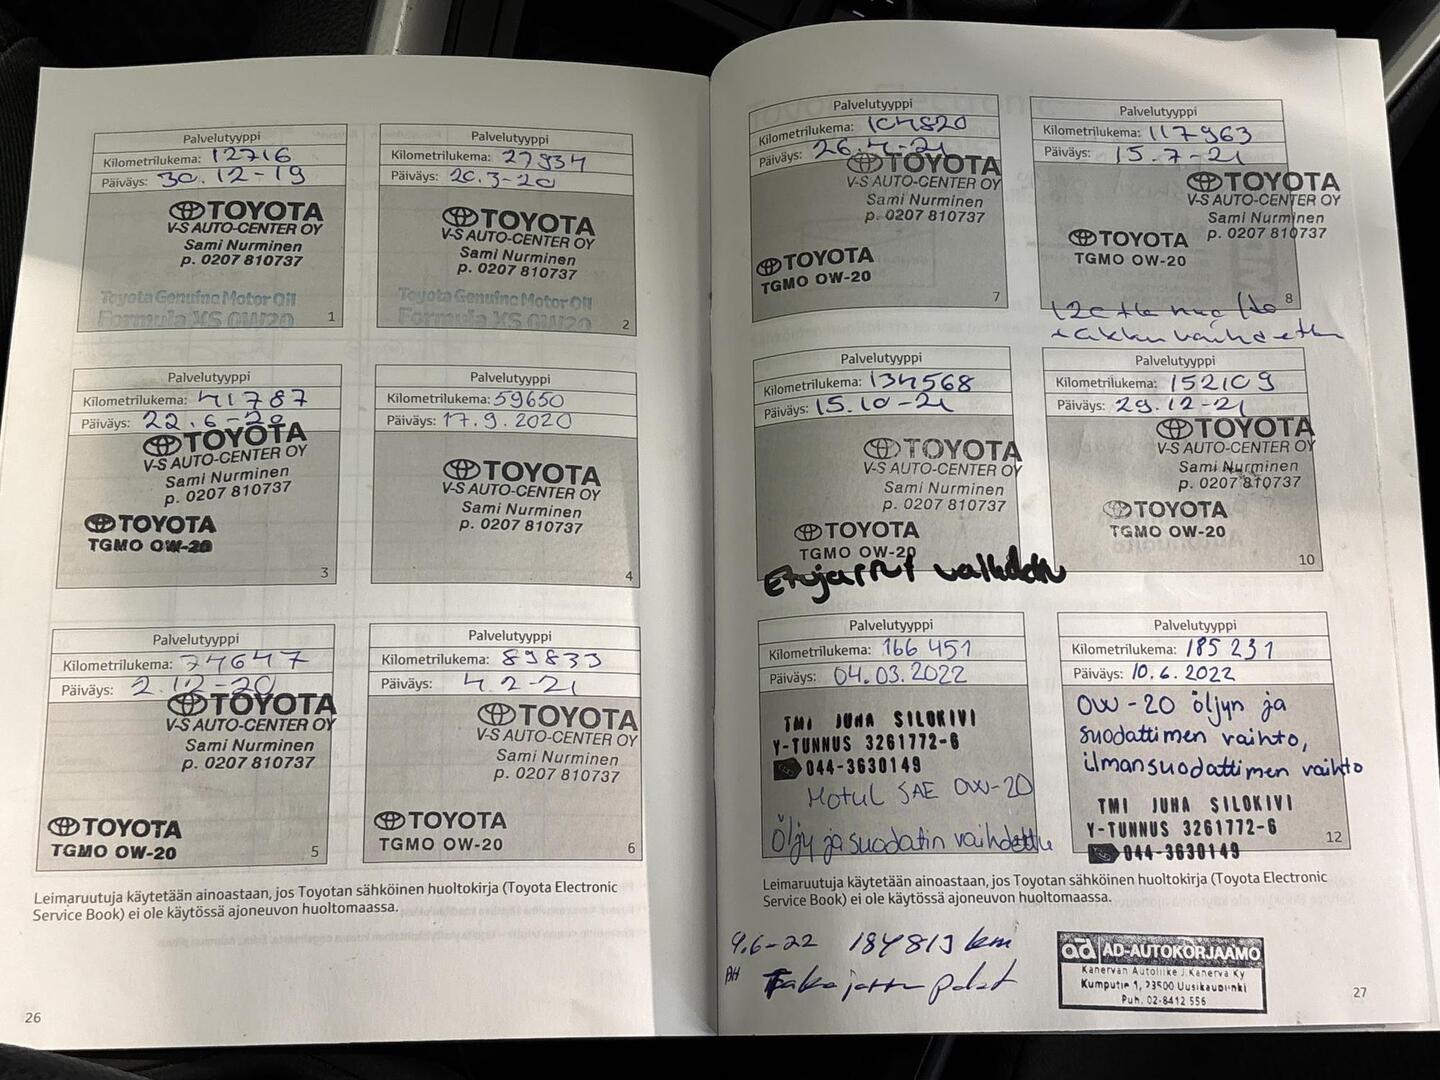 Palvelutyyppi
Kilometrilukema: 12716
Päiväys: 30.12-19
TOYOTA
V-S AUTO-CENTER OY
Sami Nurminen
p. 0207 810737
Toyota Genuine Motor Oil
Formula XS 0W20
1
Palvelutyyppi
Kilometrilukema: 27934
Päiväys: 20.3-20
TOYOTA
V-S AUTO-CENTER OY
Sami Nurminen
p. 0207 810737
Toyota Genuine Motor Oil
Formula XS 0W20
2
Palvelutyyppi
Kilometrilukema: 41787
Päiväys: 22.6-20
TOYOTA
V-S AUTO-CENTER OY
Sami Nurminen
p. 0207 810737
TOYOTA
TGMO OW-20
3
Palvelutyyppi
Kilometrilukema: 59650
Päiväys: 17.9.2020
TOYOTA
V-S AUTO-CENTER OY
Sami Nurminen
p. 0207 810737
4
Palvelutyyppi
Kilometrilukema: 74647
Päiväys: 2.12-20
TOYOTA
V-S AUTO-CENTER OY
Sami Nurminen
p. 0207 810737
TOYOTA
TGMO OW-20
5
Palvelutyyppi
Kilometrilukema: 89833
Päiväys: 4.2-21
TOYOTA
V-S AUTO-CENTER OY
Sami Nurminen
p. 0207 810737
TOYOTA
TGMO OW-20
6
Leimaruutuja käytetään ainoastaan, jos Toyotan sähköinen huoltokirja (Toyota Electronic
Service Book) ei ole käytössä ajoneuvon huoltomaassa.
26
Palvelutyyppi
Kilometrilukema: 104820
Päiväys: 26.4-21
TOYOTA
V-S AUTO-CENTER OY
Sami Nurminen
p. 0207 810737
TOYOTA
TGMO OW-20
7
Palvelutyyppi
Kilometrilukema: 117963
Päiväys: 15.7-21
TOYOTA
V-S AUTO-CENTER OY
Sami Nurminen
p. 0207 810737
TOYOTA
TGMO OW-20
8
Palvelutyyppi
Kilometrilukema: 134568
Päiväys: 15.10-21
TOYOTA
V-S AUTO-CENTER OY
Sami Nurminen
p. 0207 810737
TOYOTA
TGMO OW-20
Etujarrut vaihdettu
Palvelutyyppi
Kilometrilukema: 152109
Päiväys: 29.12-21
TOYOTA
V-S AUTO-CENTER OY
Sami Nurminen
p. 0207 810737
TOYOTA
TGMO OW-20
10
Palvelutyyppi
Kilometrilukema: 166 451
Päiväys: 04.03.2022
TMI JUHA SILOKIVI
Y-TUNNUS 3261772-6
044-3630149
Motul SAE 0W-20
Öljy ja suodatin vaihdettu
Palvelutyyppi
Kilometrilukema: 185 231
Päiväys: 10.6.2022
0W-20 öljyn ja
suodattimen vaihto,
ilmansuodattimen vaihto
TMI JUHA SILOKIVI
Y-TUNNUS 3261772-6
044-3630149
12
Leimaruutuja käytetään ainoastaan, jos Toyotan sähköinen huoltokirja (Toyota Electronic
Service Book) ei ole käytössä ajoneuvon huoltomaassa.
9.6-22 184813 km
Takajarru palat
ad AD-AUTOKORJAAMO
Kanervan Autoliike J.Kanerva Ky
Kumputie 1, 23500 Uusikaupunki
Puh. 02-8412 556
27